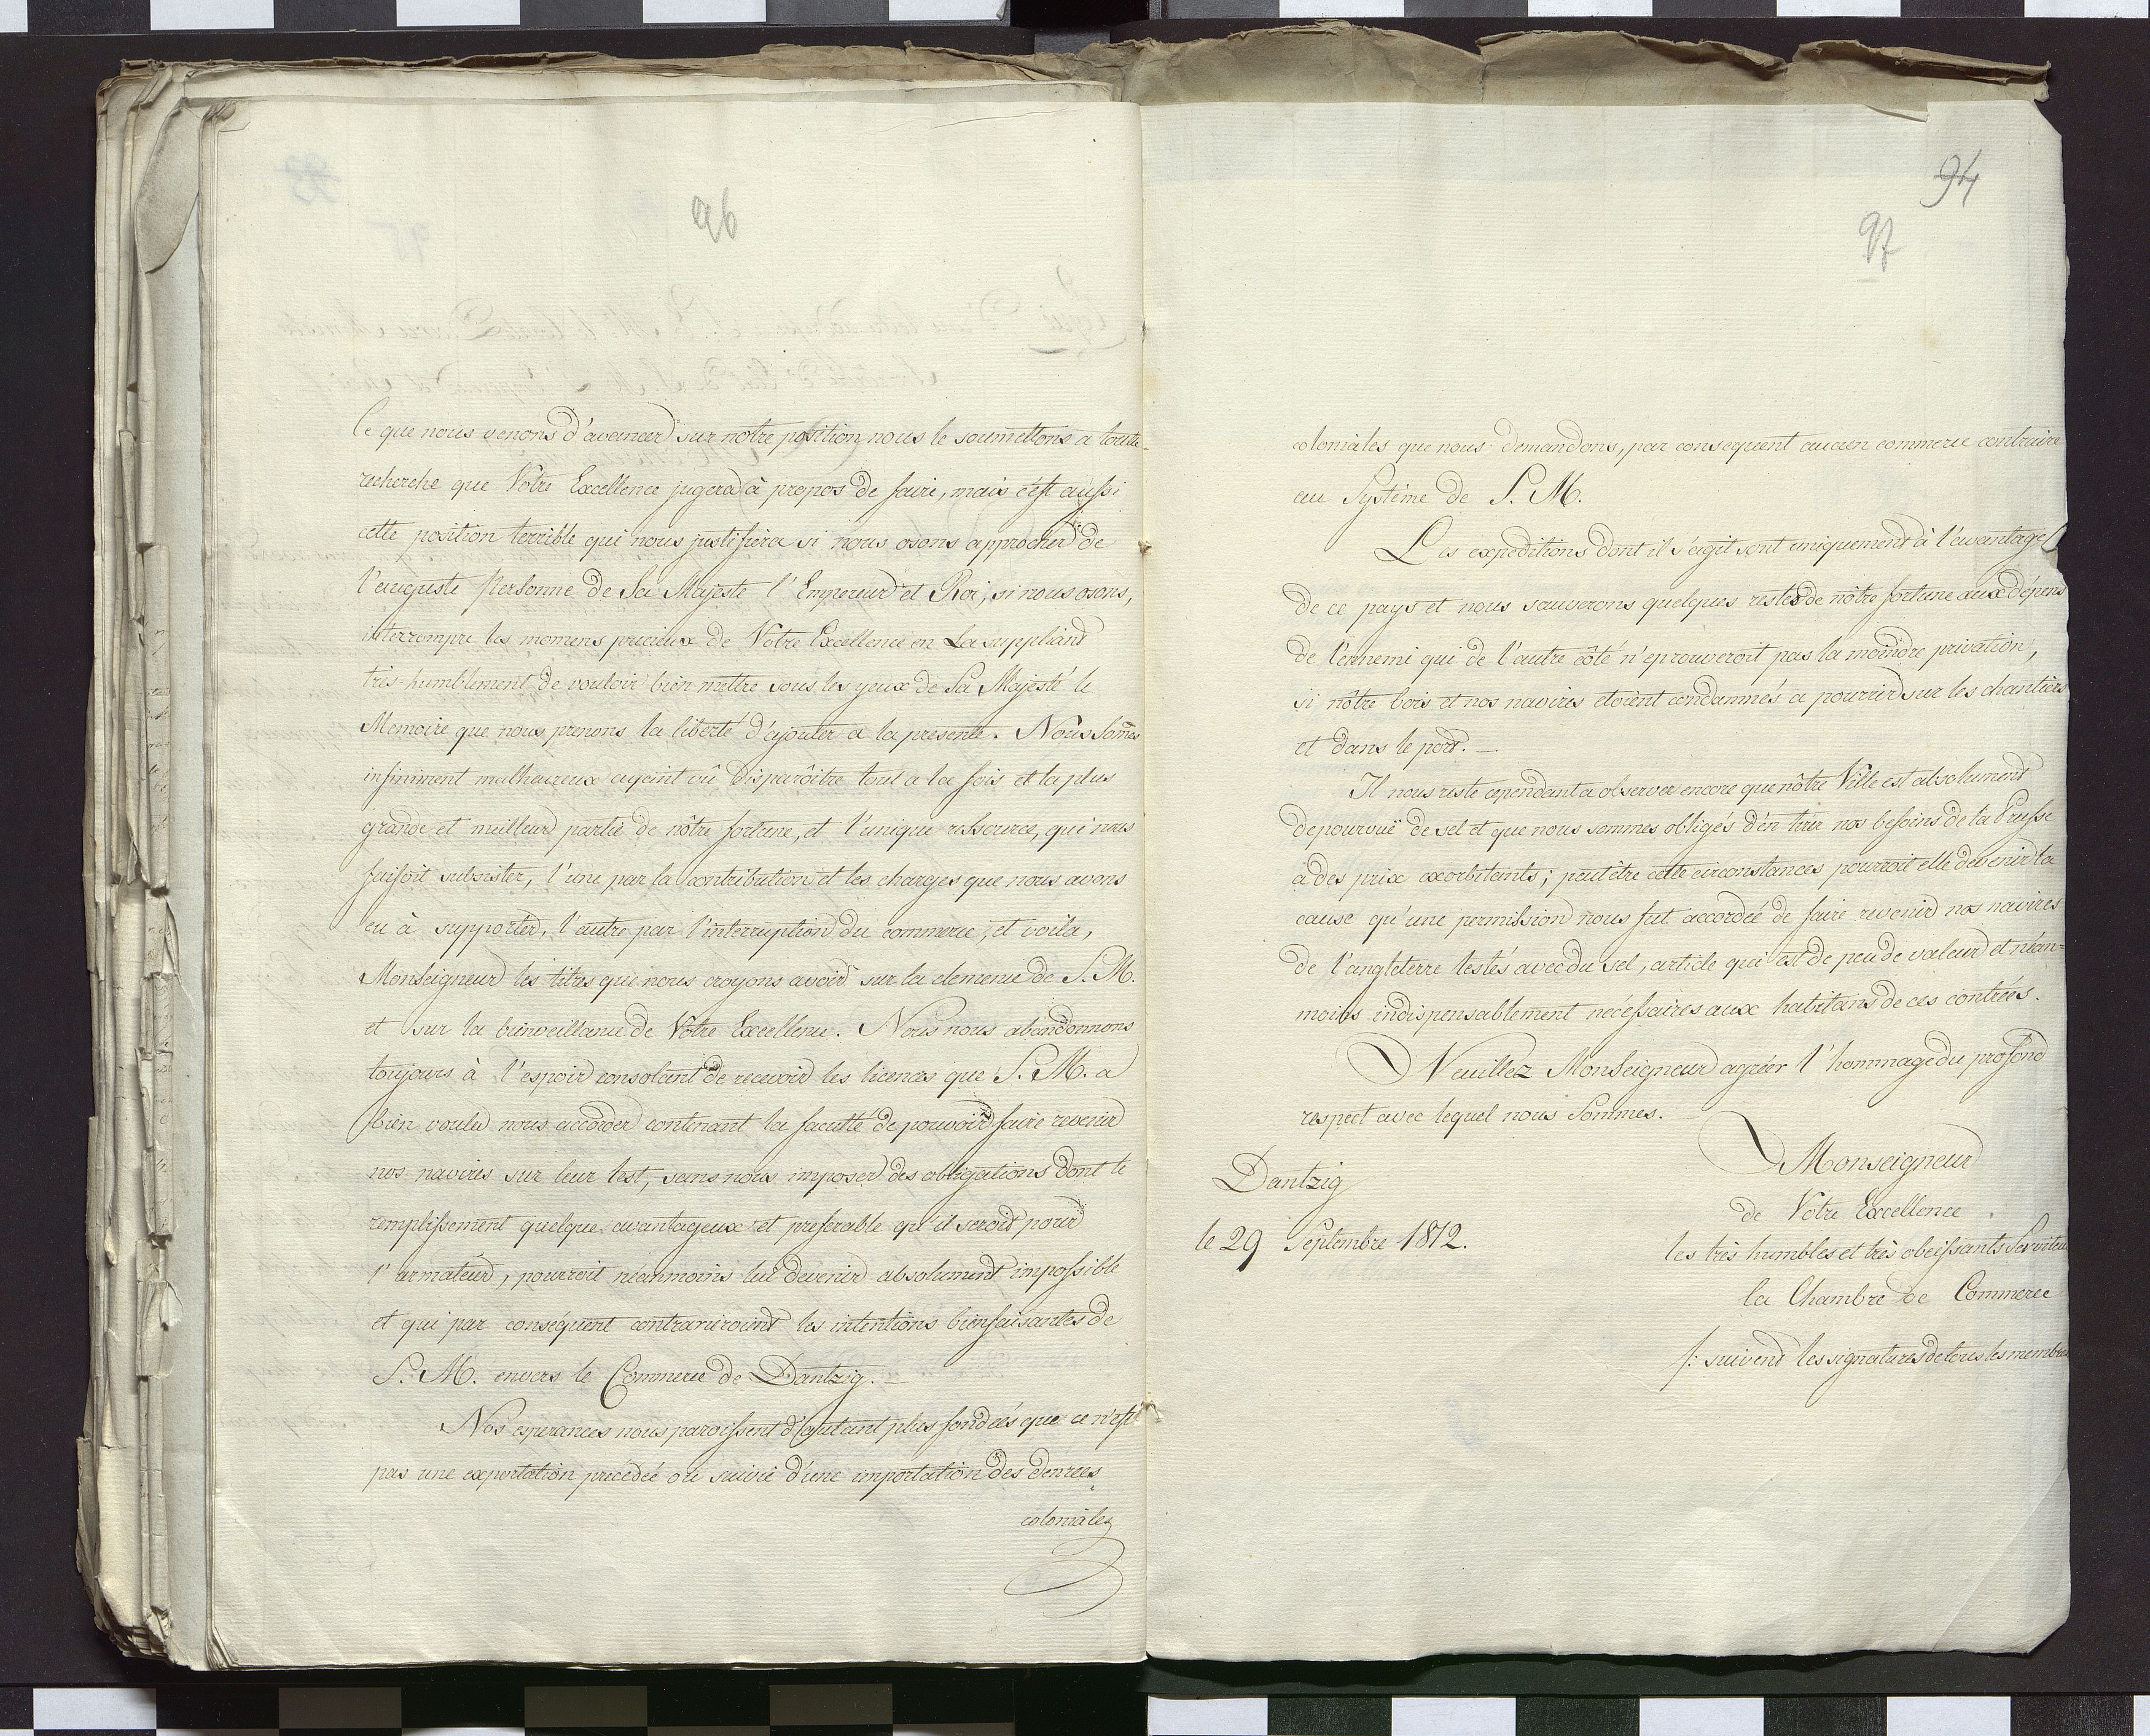 96
Ce que nous venons d'avancer sur notre position nous le soumettons a toute
recherche que Votre Excellence jugera à propos de faire, mais c'est aussi
cette position terrible qui nous justifiera si nous osons approcher de
l'auguste Personne de Sa Majesté l'Empereur et Roi, si nous osons,
interrompre les momens precieux de Votre Excellence en La suppliant
très-humblement de vouloir bien mettre sous les yeux de Sa Majesté le
Memoire que nous prenons la liberté d'ajouter a la presente. Nous som̄es
infiniment malhaureux ayant vû disparôitre tout a la fois et la plus
grande et meilleur partie de nôtre fortune, et l'unique ressource, qui nous
faisoit subsister, l'une par la contribution et les charges que nous avons
eu à supporter, l'autre par l'interruption du commerce, et voila,
Monseigneur les titres que nous croyons avoir sur la clemence de S. M.
et sur la bienveillance de Votre Excellence. Nous nous abandonnons
toujours à l'espoir consolant de recevoir les licences que S. M. a
bien voulu nous accorder contenant la faculté de pouvoir faire revenir
nos navires sur leur lest, sans nous imposer des obligations dont le
remplissement quelque avantageux et preferable qu'il seroit pour
l'armateur, pourroit néanmoins lui devenir absolument impossible
et qui par conséquent contrarieroient les intentions bienfaisantes de
S. M. envers le Commerce de Dantzig. —
Nos esperances nous paroissent d'autant plus fondées que ce n'est
pas une exportation précédée ou suivie d'une importation des denrees
coloniales
94
97
coloniales que nous demandons, par consequent aucun commerce contraire
au Système de S. M.
Les expeditions dont il s'agit sont uniquement à l'avantage
de ce pays et nous sauverons quelques restes de nôtre fortune aux dépens
de l'ennemi qui de l'autre côté n'eprouveroit pas la moindre privation,
si nôtre bois et nos navires etoient condamnés a pourrir sur les chantiers
et dans le port. —
Il nous reste cependant a observer encore que nôtre Ville est absolument
depourvuë de sel et que nous sommes obligés d'en tirer nos besoins de la Prusse
à des prix exorbitants; peutêtre cette circonstances pourroit elle devenir la
cause qu'une permission nous fut accordée de faire revenir nos navires
de l'angleterre lestés avec du sel, article qui est de peu de valeur et néan=
moins indispensablement nécessaires aux habitans de ces contrées.
Veuillez Monseigneur agréer l'hommage du profond
respect avec lequel nous Sommes.
Monseigneur
Dantzig
de Votre Excellence
le 29 Septembre 1812.
les très humbles et très obeissants Serviteu
la Chambre de Commerce
/: suivent les signatures de tous les membres